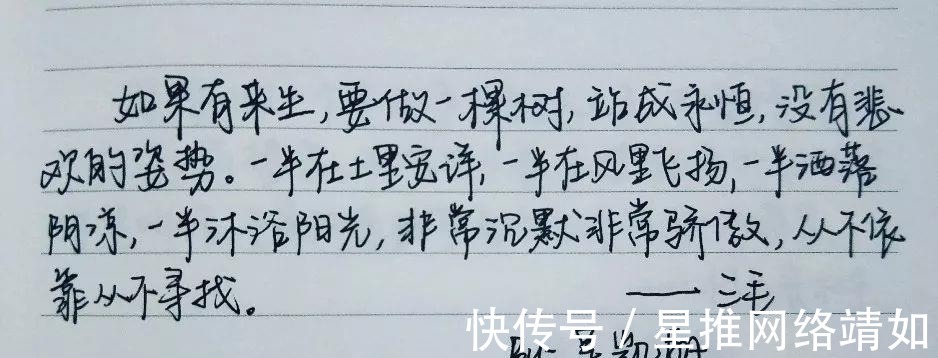 如果有来生,要做一棵树,站成永恒,没有悲
欢的姿势。一半在土里安详,一半在风里飞扬,一半洒落
阴凉,一半沐浴阳光,非常沉默非常骄傲,从不依
靠从不寻找。
——三毛
快传号/星推网络靖如